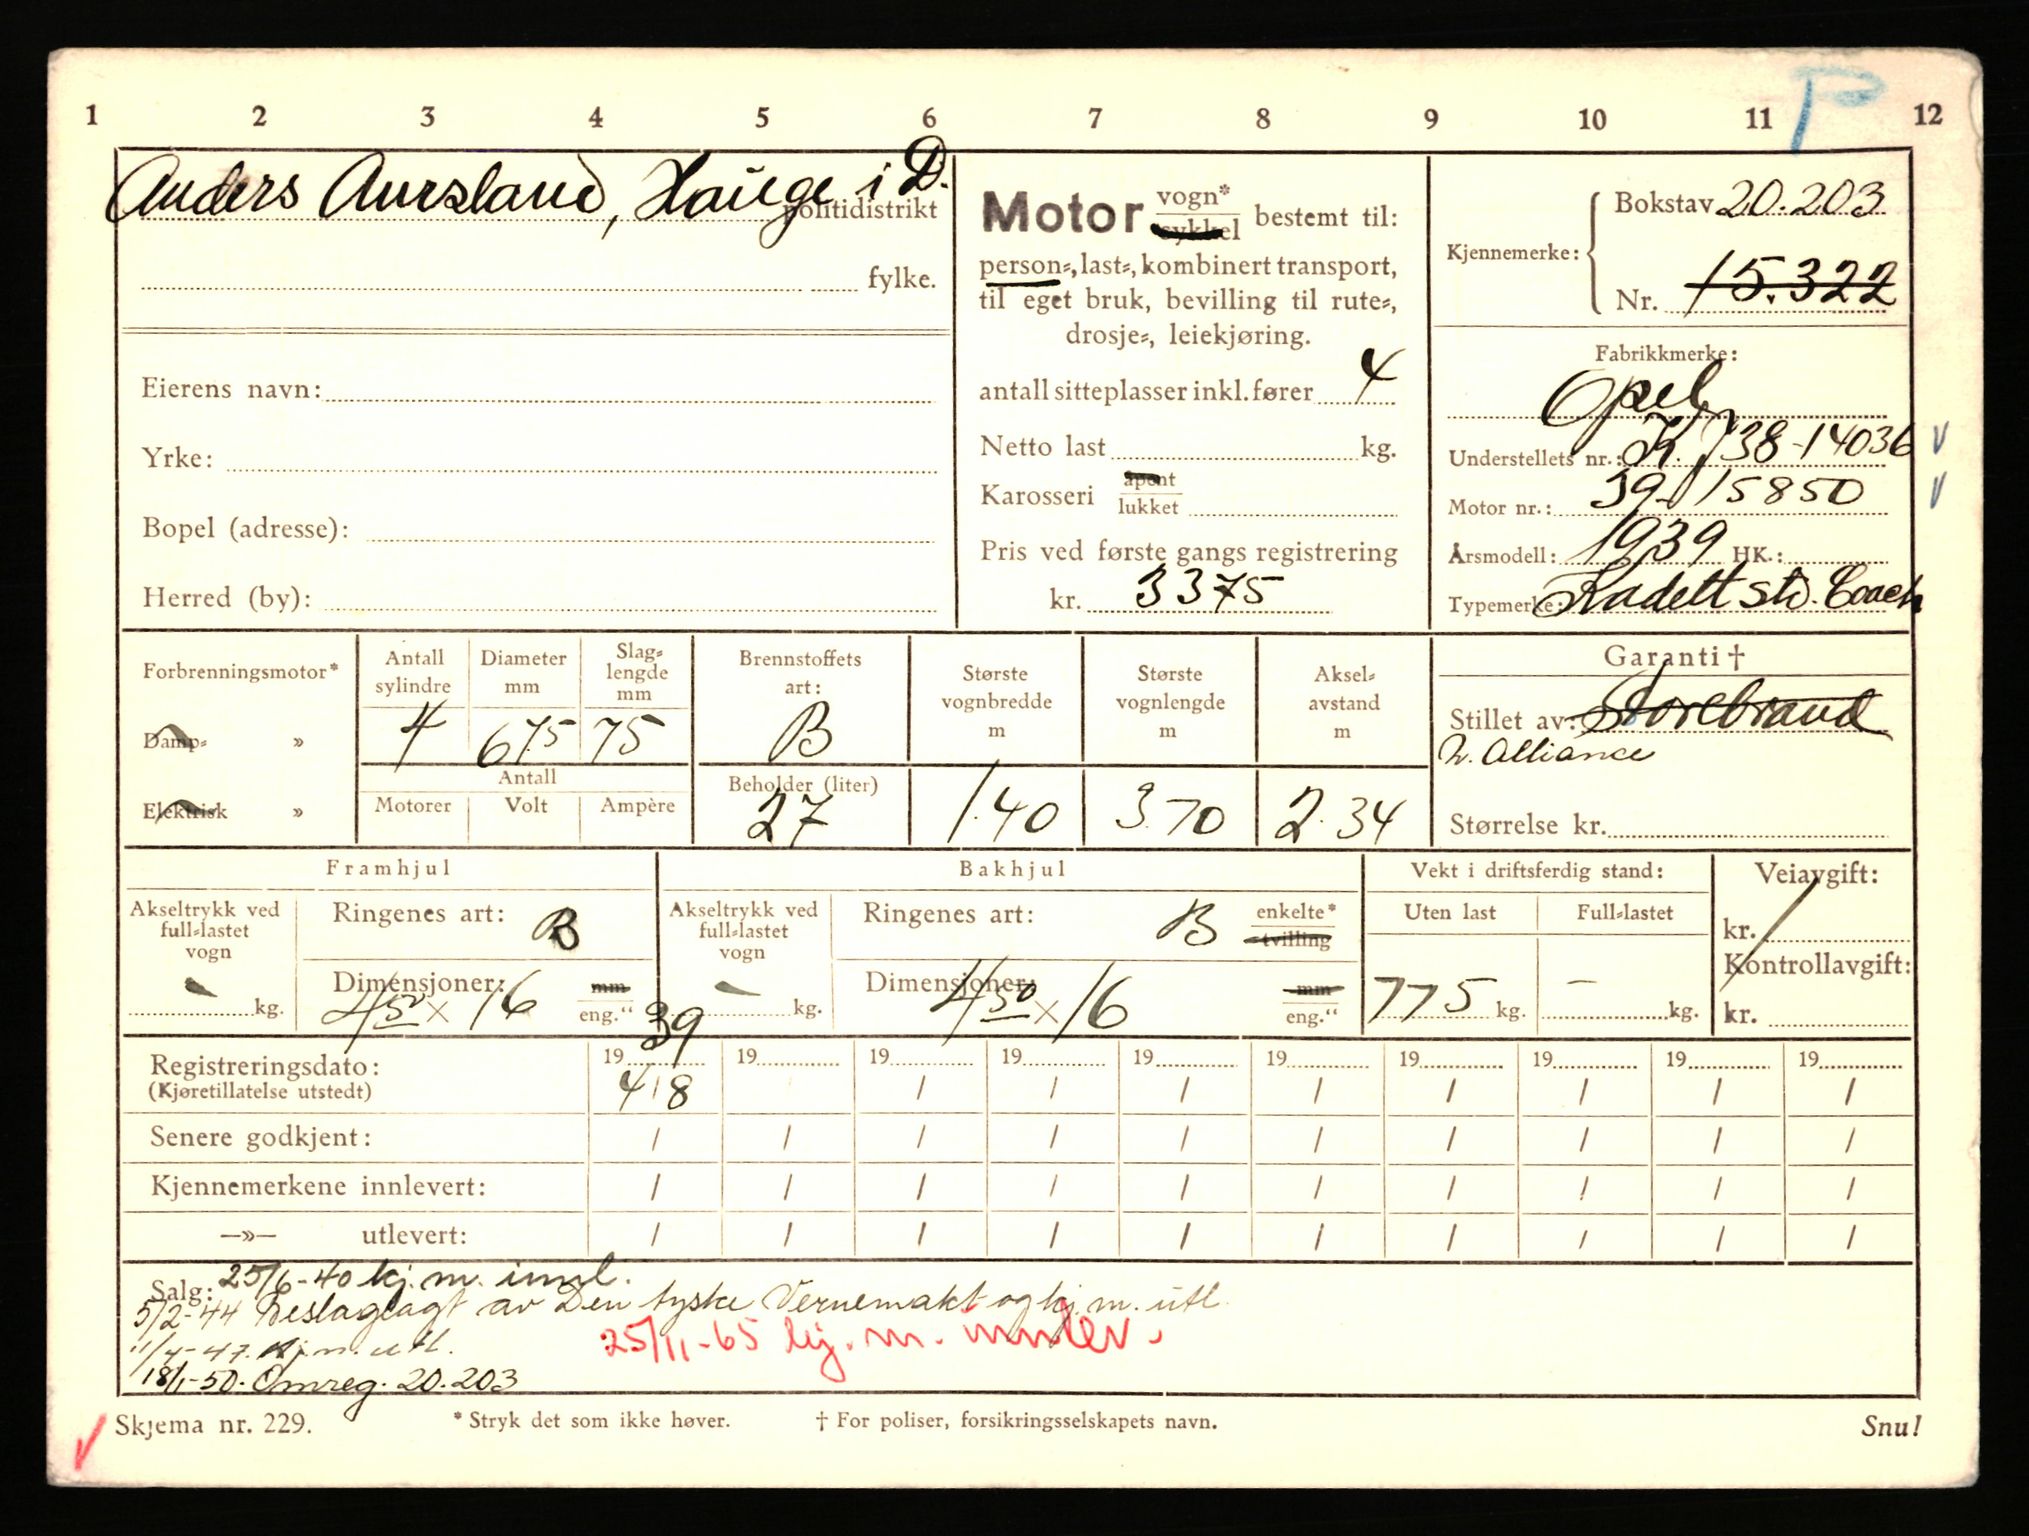 1 2 3 4 5 6 7 8 9 10 11 12
P
Anders Auesland, Hauge i D.
politidistrikt
fylke.
Eierens navn:
Yrke:
Bopel (adresse):
Herred (by):
Motor vogn* sykkel bestemt til:
person-, last-, kombinert transport,
til eget bruk, bevilling til rute-,
drosje-, leiekjøring.
antall sitteplasser inkl. fører 4
Netto last kg.
Karosseri åpent lukket
Pris ved første gangs registrering
kr. 3375
Kjennemerke: Bokstav 20.203
Nr. 15.322
Fabrikkmerke:
Opel
Understellets nr.: K. J 38-14036
Motor nr.: 39-15850
Årsmodell: 1939 HK.:
Typemerke: Kadett std. Coach
Forbrenningsmotor*
Damp- »
Elektrisk »
Antall sylindre
4
Diameter mm
675
Slag-lengde mm
75
Antall
Motorer Volt Ampère
Brennstoffets art:
B
Beholder (liter)
27
Største vognbredde m
1.40
Største vognlengde m
3.70
Aksel-avstand m
2.34
Garanti †
Stillet av: Storebrand
N. Alliance
Størrelse kr.
Framhjul
Akseltrykk ved full-lastet vogn
- kg.
Ringenes art: B
Dimensjoner: 4 50 x 16 mm eng."
Bakhjul
Akseltrykk ved full-lastet vogn
- kg.
Ringenes art: B enkelte* tvilling
Dimensjoner: 4 50 x 16 mm eng."
Vekt i driftsferdig stand:
Uten last Full-lastet
775 kg. - kg.
Veiavgift:
kr.
Kontrollavgift:
kr.
Registreringsdato: 19 39 19 19 19 19 19 19 19 19 19
(Kjøretillatelse utstedt) 4/8 / / / / / / / /
Senere godkjent: / / / / / / / / / /
Kjennemerkene innlevert: / / / / / / / / / /
—»— utlevert: / / / / / / / / / /
Salg: 25/6-40 kj. m. innl.
5/2-44 Beslaglagt av Den tyske Vernemakt og kj. m. utl.
11/4-47. Kj. m. utl.
25/11-65 kj. m. innlev.
18/1-50. Omreg. 20.203
Skjema nr. 229.
* Stryk det som ikke høver.
† For poliser, forsikringsselskapets navn.
Snu!